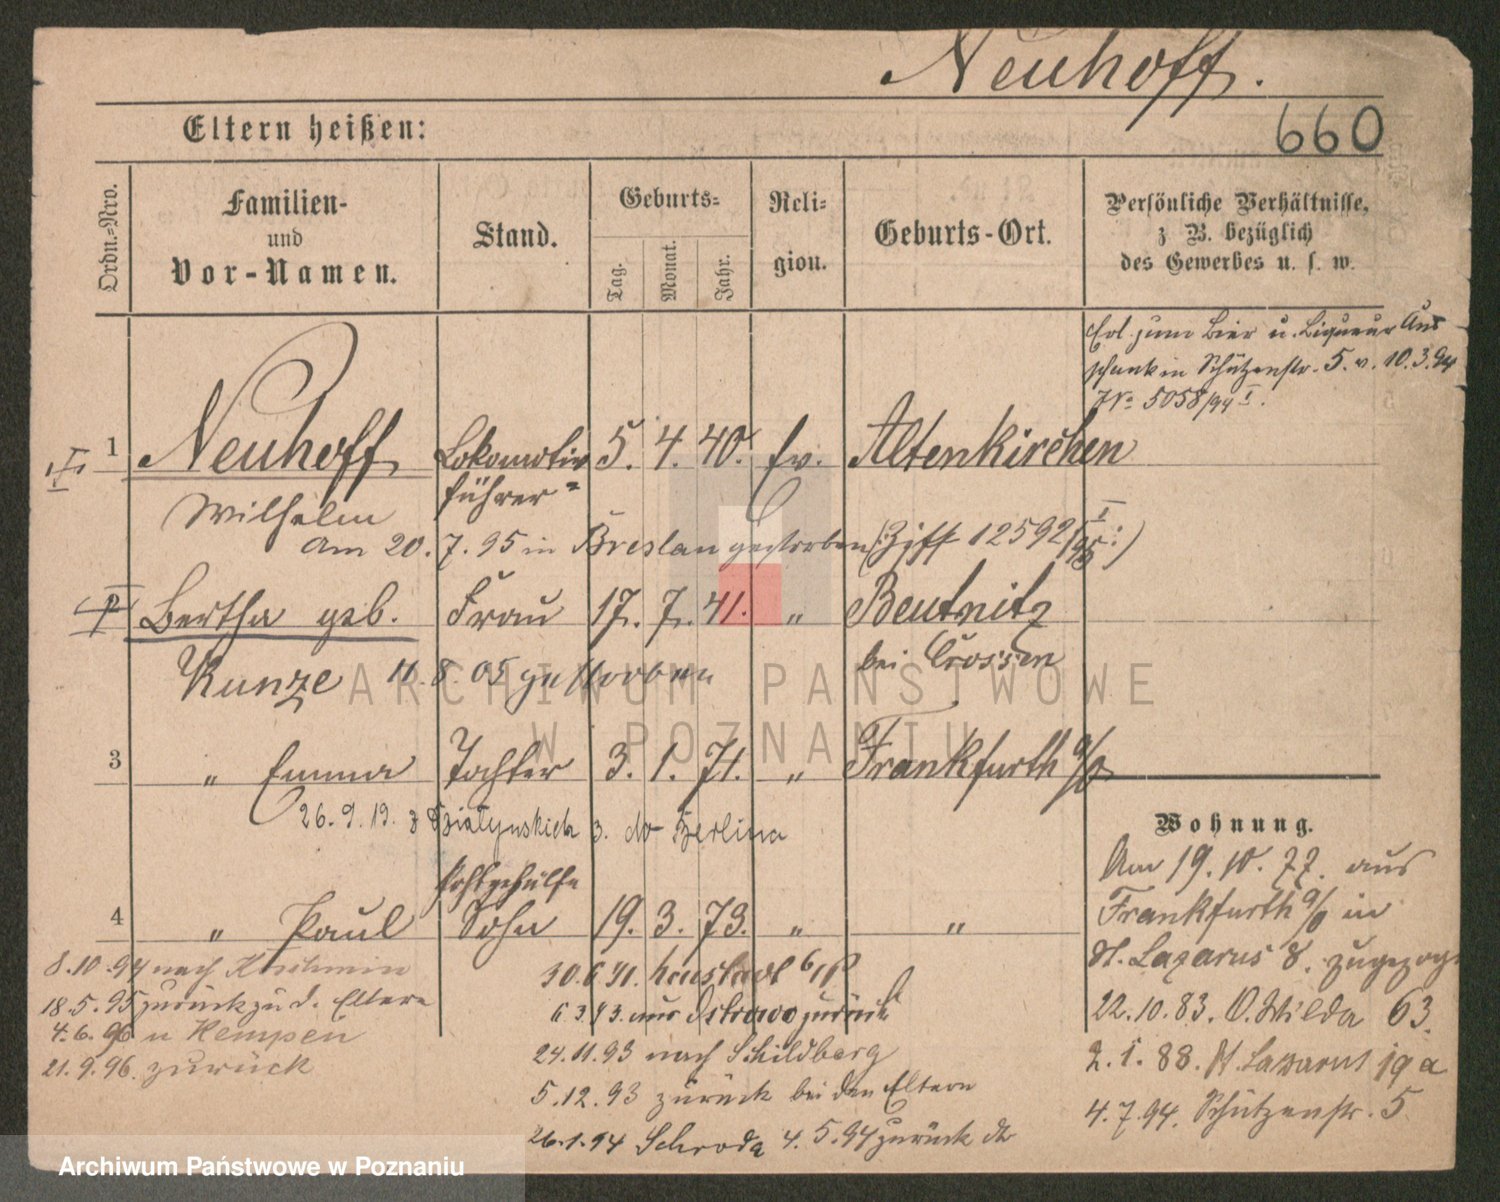 Neuhoff.
660
Eltern heißen:
Ordn.-Nro.
Familien-
und
Vor-Namen.
Stand.
Geburts-
Tag.
Monat.
Jahr.
Reli-
gion.
Geburts-Ort.
Persönliche Verhältnisse,
z B. bezüglich
des Gewerbes u. s. w.
Erl. zum Bier u. Liqueur Aus
schank in Schützenstr. 5. v. 10.3.94
No 5058/94 I.
1 Neuhoff Lokomotiv 5. 4. 40. Ev. Altenkirchen
führer
Wilhelm
Am 20. 7. 95 in Breslau gestorben (Ziff 12592 I/95)
Bertha geb. Frau 17. 7. 41. " Beutnitz
Kunze 11. 8. 05 gestorben bei Crossen
3 " Emma Tochter 3. 1. 71. " Frankfurth a/O
26. 9. 19. z Działyńskich 3. do Berlina
Postgehülfe
4 " Paul Sohn 19. 3. 73. " "
8.10.94 nach Koschmin
18.5.95 zurück zu d. Eltern
4.6.96 n Kempen
21.9.96. zurück
30.6.91.
aus Ostrowo zurück
24.11.93 nach Schildberg
5.12.93 zurück bei den Eltern
26.1.94 Schroda 4. 5. 94 zurück
Wohnung.
Am 19. 10. 77. aus
Frankfurth a/O in
St. Lazarus 8. zugezogen
22.10.83. O. Wilda 63.
2. 1. 88. St. Lazarus 19 a
4.7.94. Schützenstr. 5
ARCHIWUM PAŃSTWOWE
W POZNANIU
Archiwum Państwowe w Poznaniu